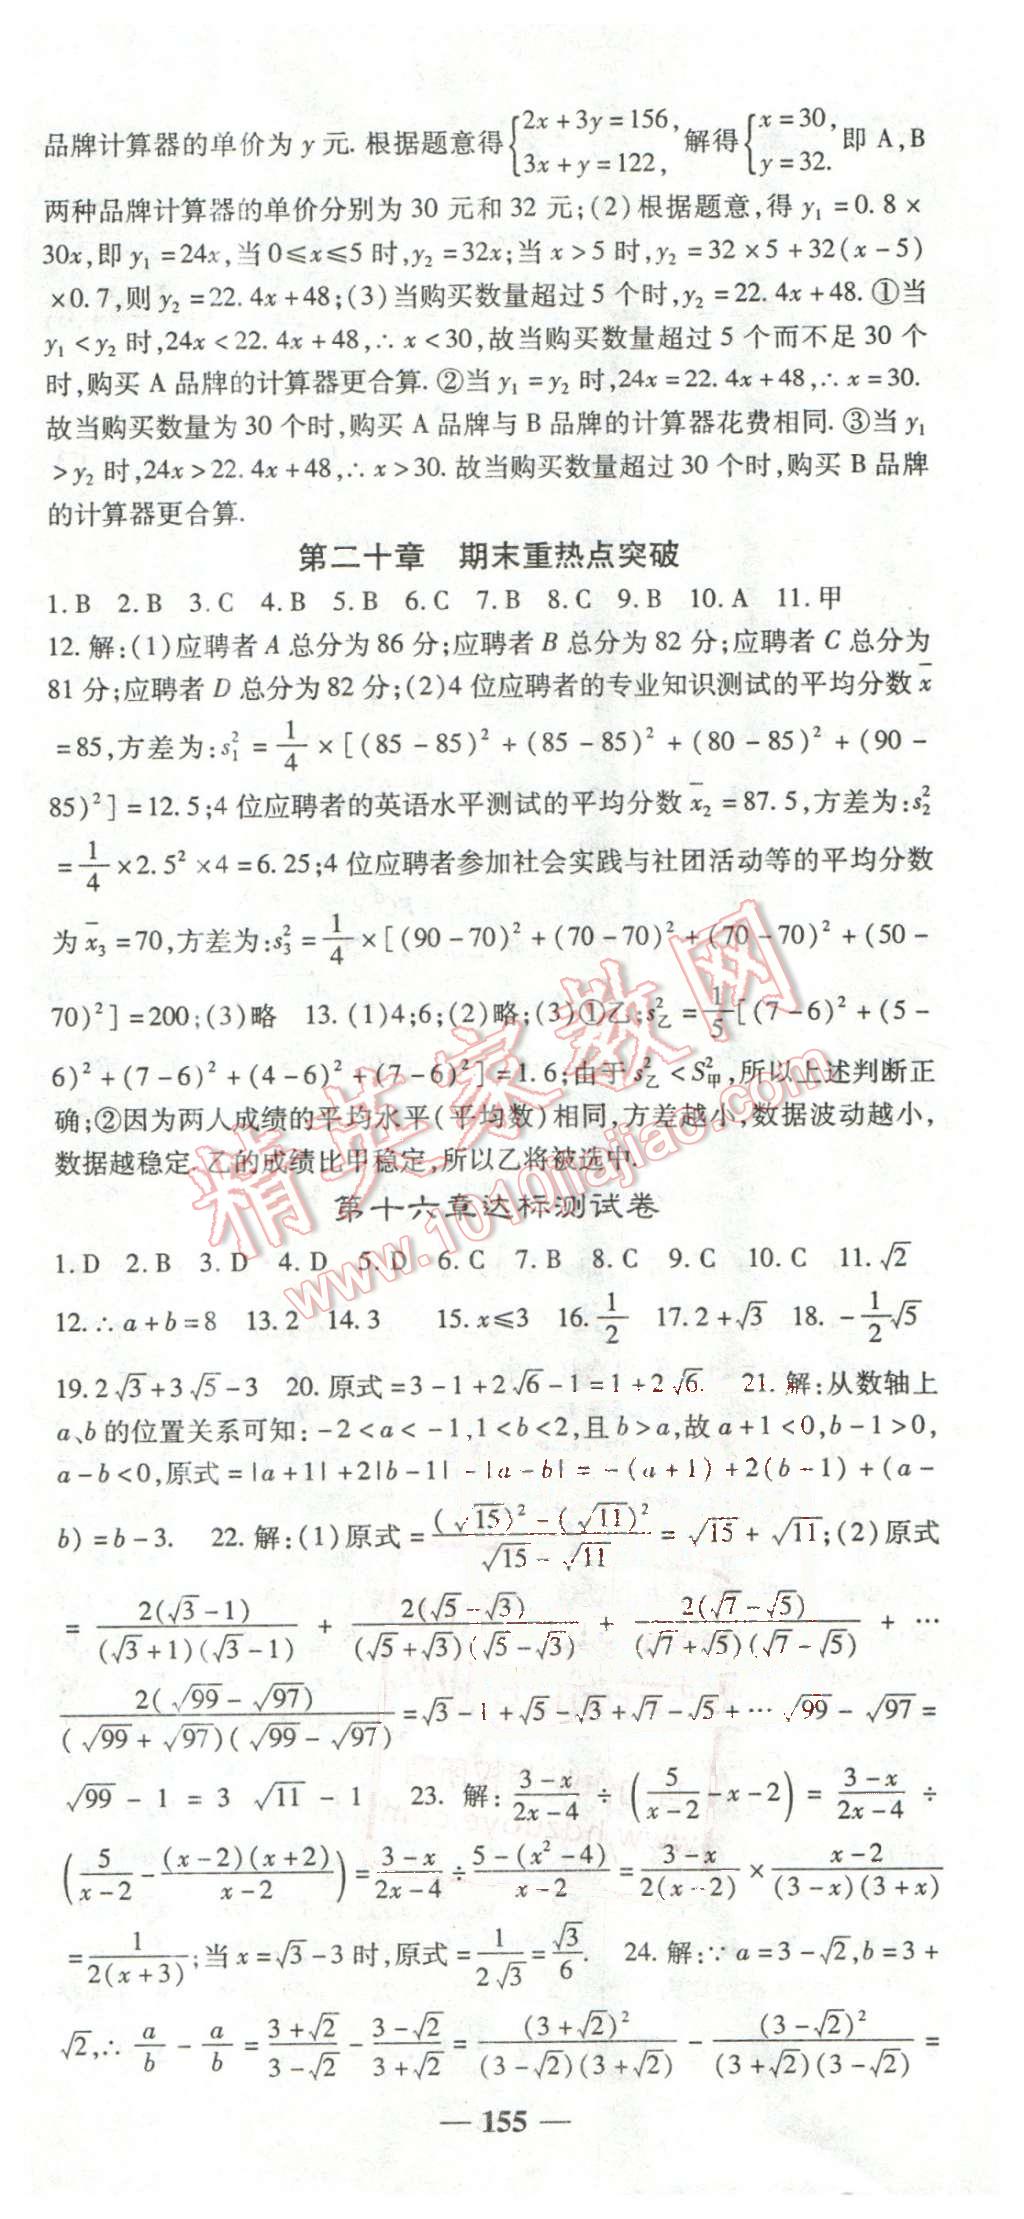 品牌计算器的单价为 y 元. 根据题意得{2x+3y=156, 3x+y=122, 解得{x=30, y=32. 即 A,B
两种品牌计算器的单价分别为 30 元和 32 元;(2)根据题意,得 y₁=0.8×
30x,即 y₁=24x,当 0≤x≤5 时,y₂=32x;当 x>5 时,y₂=32×5+32(x-5)
×0.7,则 y₂=22.4x+48;(3)当购买数量超过 5 个时,y₂=22.4x+48.①当
y₁<y₂ 时,24x<22.4x+48,∴x<30,故当购买数量超过 5 个而不足 30 个
时,购买 A 品牌的计算器更合算.②当 y₁=y₂ 时,24x=22.4x+48,∴x=30.
故当购买数量为 30 个时,购买 A 品牌与 B 品牌的计算器花费相同.③当 y₁
>y₂ 时,24x>22.4x+48,∴x>30.故当购买数量超过 30 个时,购买 B 品牌
的计算器更合算.
第二十章 期末重热点突破
1.B 2.B 3.C 4.B 5.B 6.C 7.B 8.C 9.B 10.A 11.甲
12.解:(1)应聘者 A 总分为 86 分;应聘者 B 总分为 82 分;应聘者 C 总分为
81 分;应聘者 D 总分为 82 分;(2)4 位应聘者的专业知识测试的平均分数 x̄
=85,方差为:s₁²=1/4×[(85-85)²+(85-85)²+(80-85)²+(90-
85)²]=12.5;4 位应聘者的英语水平测试的平均分数 x̄₂=87.5,方差为:s₂²
=1/4×2.5²×4=6.25;4 位应聘者参加社会实践与社团活动等的平均分数
为 x̄₃=70,方差为:s₃²=1/4×[(90-70)²+(70-70)²+(70-70)²+(50-
70)²]=200;(3)略 13.(1)4;6;(2)略;(3)①乙;s乙²=1/5[(7-6)²+(5-
6)²+(7-6)²+(4-6)²+(7-6)²]=1.6;由于 s乙²<S甲²,所以上述判断正
确;②因为两人成绩的平均水平(平均数)相同,方差越小,数据波动越小,
数据越稳定.乙的成绩比甲稳定,所以乙将被选中.
第十六章达标测试卷
1.D 2.B 3.D 4.D 5.D 6.C 7.B 8.C 9.C 10.C 11.√2
12.∴a+b=8 13.2 14.3 15.x≤3 16.1/2 17.2+√3 18.-1/2√5
19.2√3+3√5-3 20.原式=3-1+2√6-1=1+2√6. 21.解:从数轴上
a、b 的位置关系可知:-2<a<-1,1<b<2,且 b>a,故 a+1<0,b-1>0,
a-b<0,原式=|a+1|+2|b-1|-|a-b|=-(a+1)+2(b-1)+(a-
b)=b-3. 22.解:(1)原式=((√15)²-(√11)²)/(√15-√11)=√15+√11;(2)原式
=2(√3-1)/((√3+1)(√3-1))+2(√5-√3)/((√5+√3)(√5-√3))+2(√7-√5)/((√7+√5)(√7-√5))+…
2(√99-√97)/((√99+√97)(√99-√97))=√3-1+√5-√3+√7-√5+…√99-√97=
√99-1=3 √11-1 23.解:(3-x)/(2x-4)÷(5/(x-2)-x-2)=(3-x)/(2x-4)÷
(5/(x-2)-(x-2)(x+2)/(x-2))=(3-x)/(2x-4)÷(5-(x²-4))/(x-2)=(3-x)/(2(x-2))×(x-2)/((3-x)(3+x))
=1/(2(x+3));当 x=√3-3 时,原式=1/(2√3)=√3/6. 24.解:∵a=3-√2,b=3+
√2,∴a/b-a/b=(3+√2)/(3-√2)-(3-√2)/(3+√2)=(3+√2)²/((3-√2)(3+√2))-(3-√2)²/((3+√2)(3-√2))=
— 155 —
精英家教网
www.1010jiajiao.com